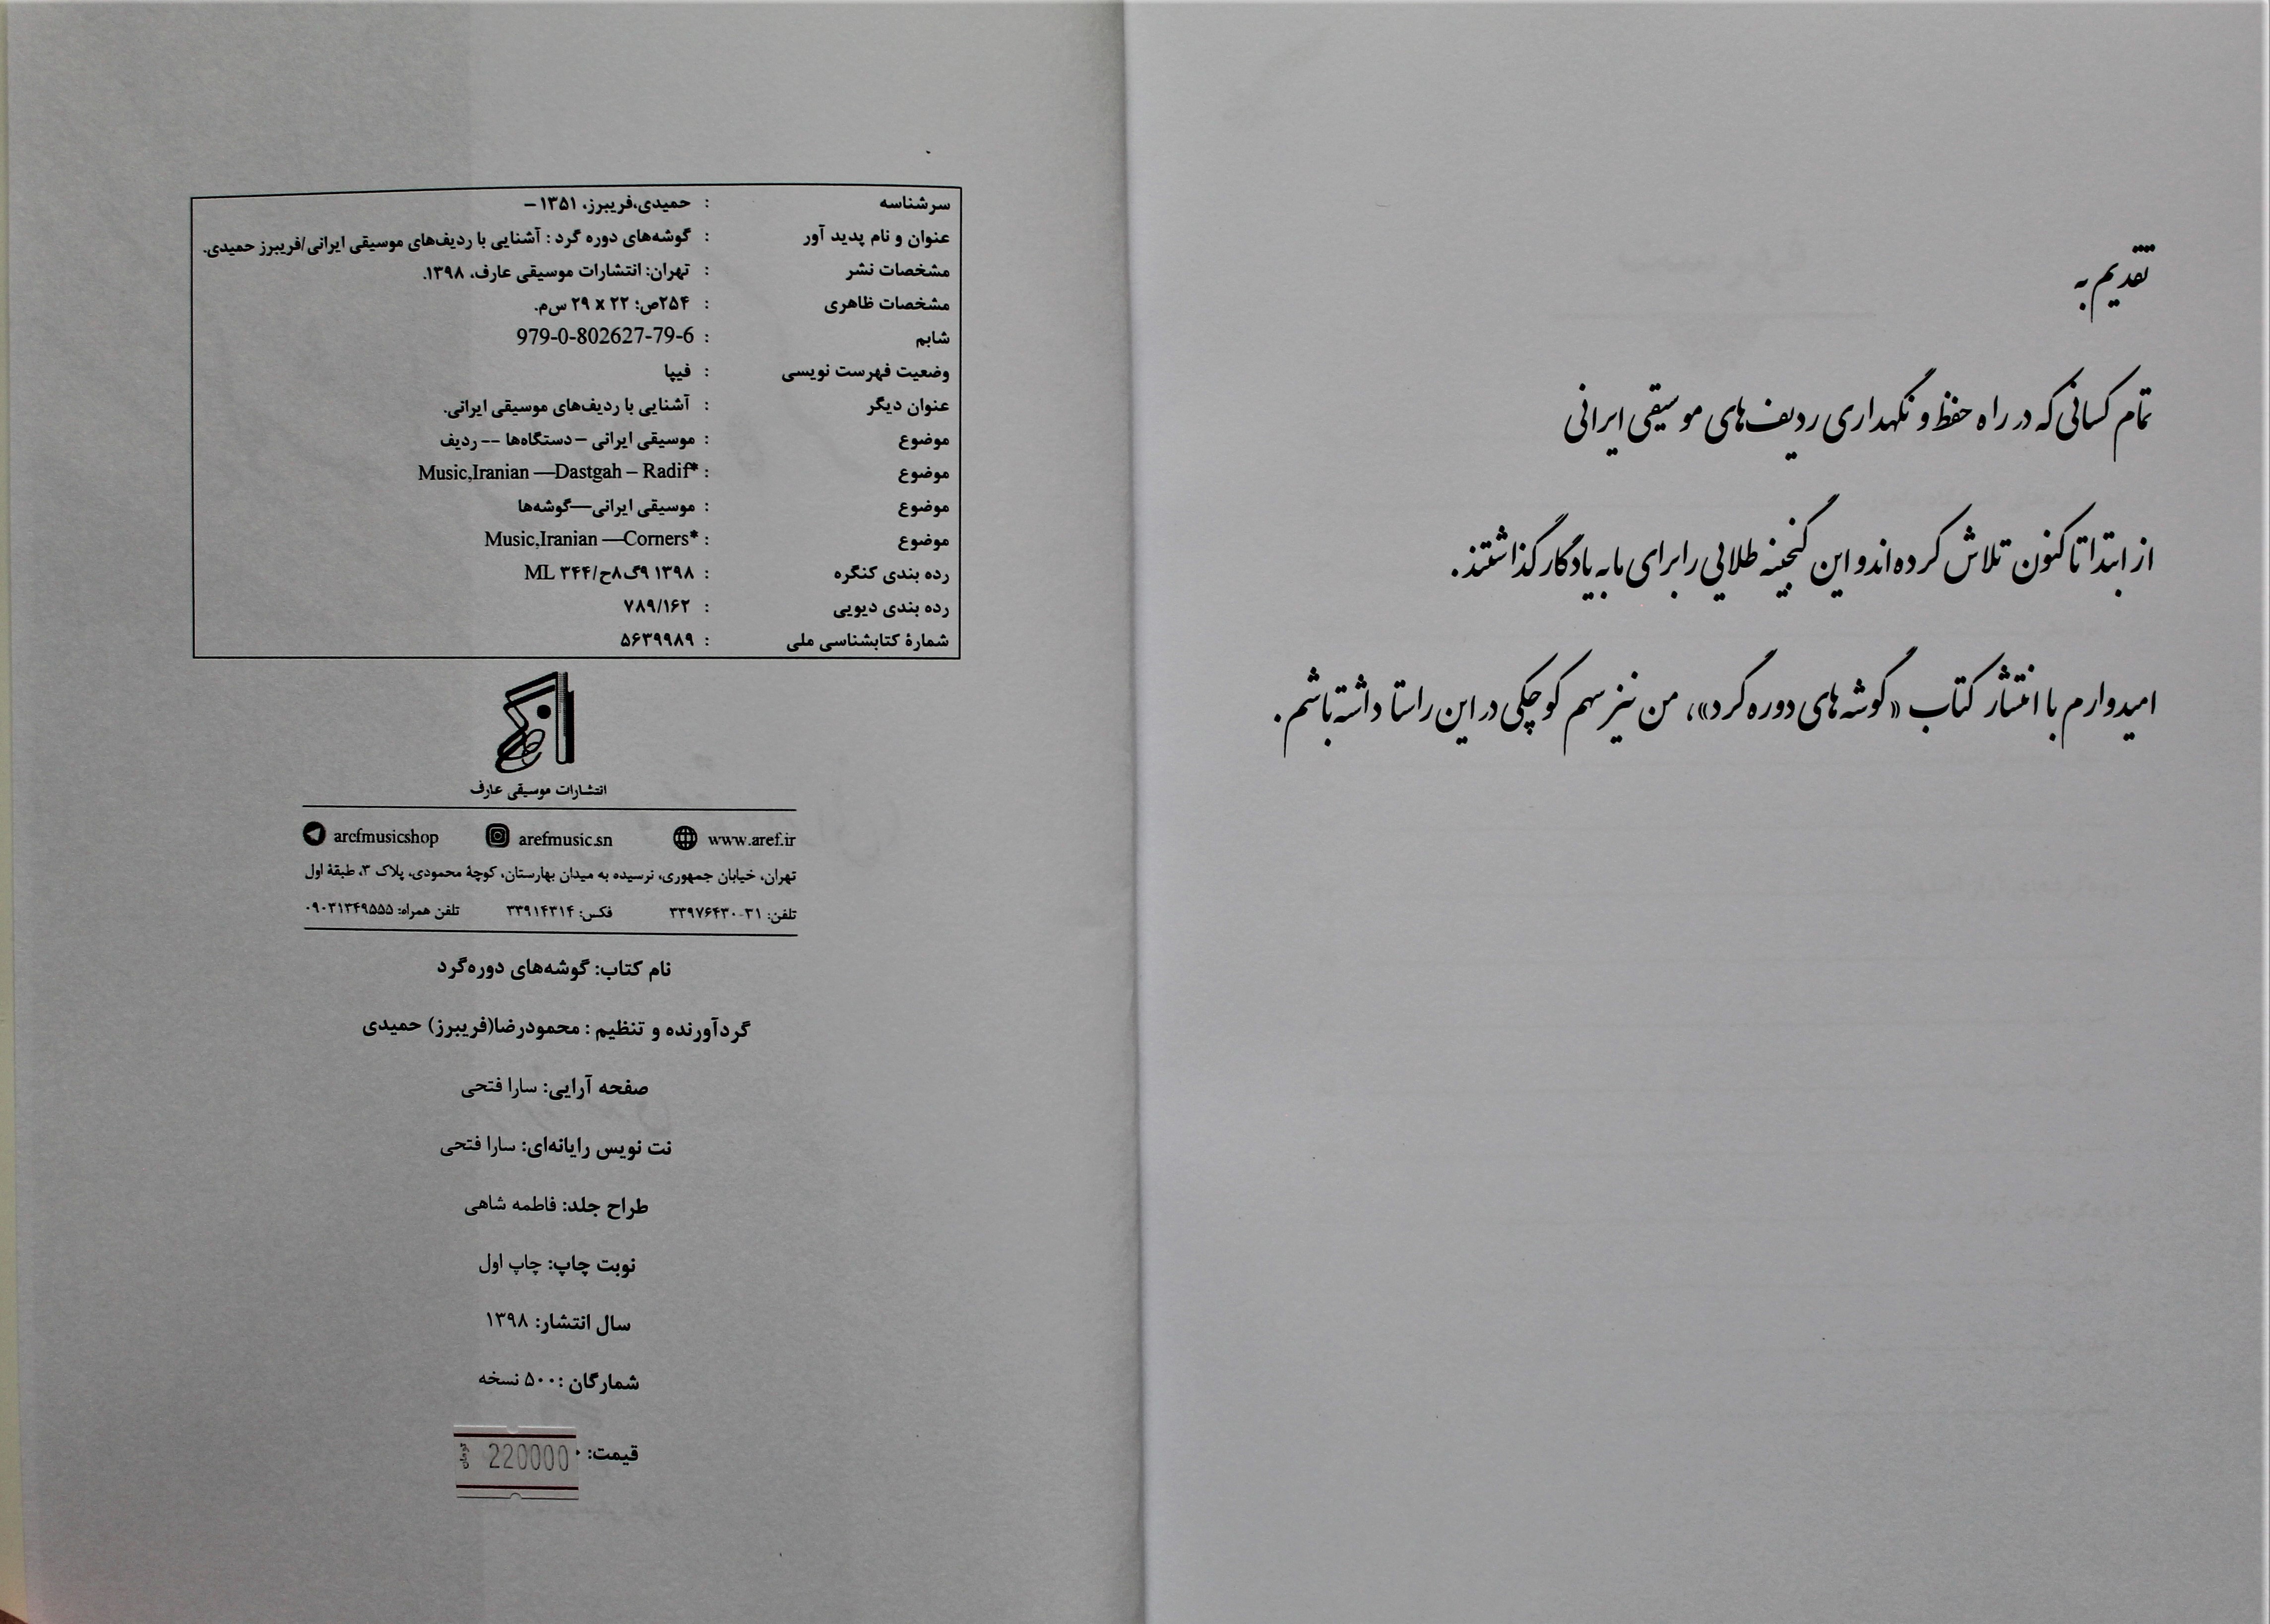 تقدیم به
تمام کسانی که در راه حفظ و نگهداری ردیف‌های موسیقی ایرانی
از ابتدا تا کنون تلاش کرده‌اند و این گنجینه طلایی را برای ما به یادگار گذاشتند.
امیدوارم با انتشار کتاب «گوشه‌های دوره گرد»، من نیز سهم کوچکی در این راستا داشته باشم.
سرشناسه : حمیدی،فریبرز، ۱۳۵۱ –
عنوان و نام پدید آور : گوشه‌های دوره گرد : آشنایی با ردیف‌های موسیقی ایرانی/فریبرز حمیدی.
مشخصات نشر : تهران: انتشارات موسیقی عارف، ۱۳۹۸.
مشخصات ظاهری : ۲۵۴ص؛ ۲۲ x ۲۹ س‌م.
شابم : 979-0-802627-79-6
وضعیت فهرست نویسی : فیپا
عنوان دیگر : آشنایی با ردیف‌های موسیقی ایرانی.
موضوع : موسیقی ایرانی – دستگاه‌ها -- ردیف
موضوع : *Music,Iranian —Dastgah – Radif
موضوع : موسیقی ایرانی—گوشه‌ها
موضوع : *Music,Iranian —Corners
رده بندی کنگره : ۱۳۹۸ ۹گ۸ح/۳۴۴ ML
رده بندی دیویی : ۷۸۹/۱۶۲
شمارهٔ کتابشناسی ملی : ۵۶۳۹۹۸۹
انتشارات موسیقی عارف
www.aref.ir arefmusic.sn arefmusicshop
تهران، خیابان جمهوری، نرسیده به میدان بهارستان، کوچهٔ محمودی، پلاک ۳، طبقهٔ اول
تلفن: ۳۱-۳۳۹۷۶۴۳۰ فکس: ۳۳۹۱۴۳۱۴ تلفن همراه: ۰۹۰۳۱۳۴۹۵۵۵
نام کتاب: گوشه‌های دوره‌گرد
گردآورنده و تنظیم : محمودرضا(فریبرز) حمیدی
صفحه آرایی: سارا فتحی
نت نویس رایانه‌ای: سارا فتحی
طراح جلد: فاطمه شاهی
نوبت چاپ: چاپ اول
سال انتشار: ۱۳۹۸
شمارگان :۵۰۰ نسخه
قیمت: 220000 تومان